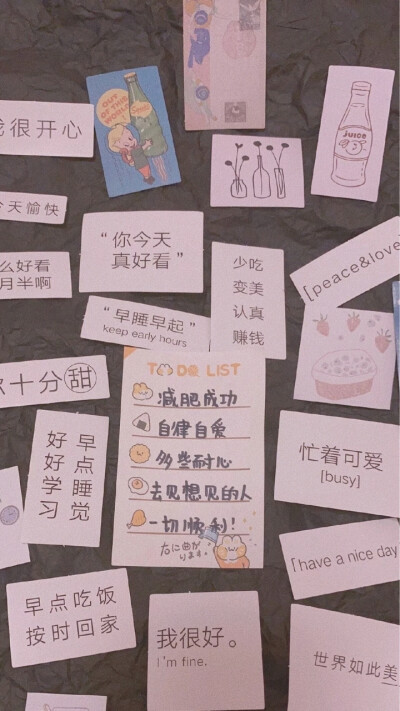 我很开心
OUT OF THIS WORLD!
JUICE
今天愉快
“你今天
真好看”
[peace&love
么好看
月半啊
少吃
变美
认真
赚钱
“早睡早起”
keep early hours
十分甜
TO DO LIST
减肥成功
自律自爱
多些耐心
去见想见的人
一切顺利!
早点睡觉
好好学习
忙着可爱
[busy]
「have a nice day
早点吃饭
按时回家
我很好。
I'm fine.
世界如此美